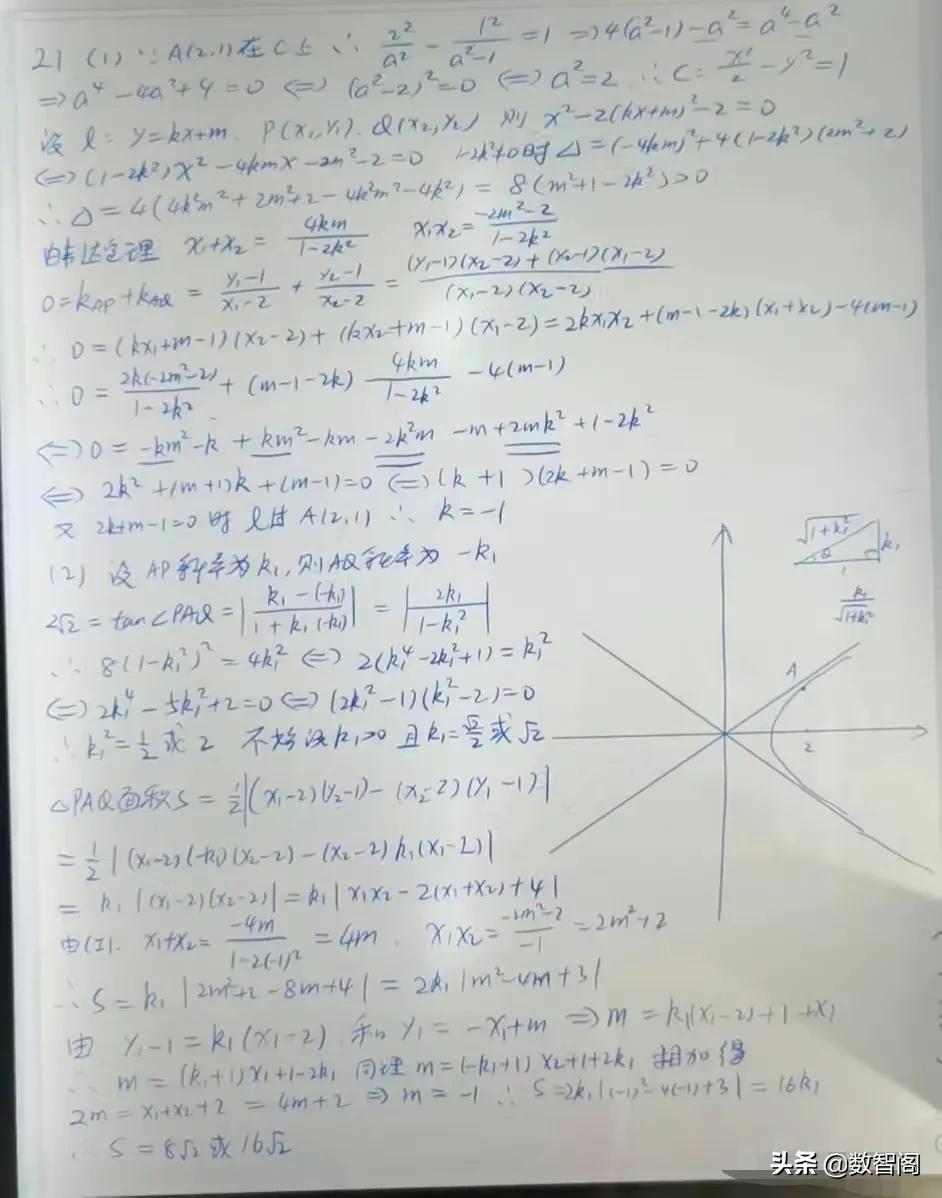 21 (1) ∵ A(2,1)在C上 ∴ 2²/a² - 1²/(a²-1) = 1 ⇒ 4(a²-1) - a² = a⁴ - a²
⇒ a⁴ - 4a² + 4 = 0 ⇔ (a²-2)² = 0 ⇔ a² = 2 ∴ C: x²/2 - y² = 1
设 l: y = kx+m. P(x₁,y₁). Q(x₂,y₂) 则 x² - 2(kx+m)² - 2 = 0
⇔ (1-2k²)x² - 4kmx - 2m² - 2 = 0 1-2k²≠0时 Δ = (-4km)² + 4(1-2k²)(2m²+2)
∴ Δ = 4(4k²m² + 2m² + 2 - 4k²m² - 4k²) = 8(m²+1-2k²) > 0
由韦达定理 x₁+x₂ = 4km/(1-2k²) x₁x₂ = (-2m²-2)/(1-2k²)
0 = k_AP + k_AQ = (y₁-1)/(x₁-2) + (y₂-1)/(x₂-2) = ((y₁-1)(x₂-2) + (y₂-1)(x₁-2))/((x₁-2)(x₂-2))
∴ 0 = (kx₁+m-1)(x₂-2) + (kx₂+m-1)(x₁-2) = 2kx₁x₂ + (m-1-2k)(x₁+x₂) - 4(m-1)
∴ 0 = 2k(-2m²-2)/(1-2k²) + (m-1-2k) 4km/(1-2k²) - 4(m-1)
⇔ 0 = -km² - k + km² - km - 2k²m - m + 2mk² + 1 - 2k²
⇔ 2k² + (m+1)k + (m-1) = 0 ⇔ (k+1)(2k+m-1) = 0
又 2k+m-1=0 时 l过 A(2,1) ∴ k = -1
(2) 设 AP斜率为 k₁, 则AQ斜率为 -k₁
2√2 = tan∠PAQ = |(k₁-(-k₁))/(1+k₁(-k₁))| = |2k₁/(1-k₁²)|
∴ 8(1-k₁²)² = 4k₁² ⇔ 2(k₁⁴-2k₁²+1) = k₁²
⇔ 2k₁⁴ - 5k₁² + 2 = 0 ⇔ (2k₁²-1)(k₁²-2) = 0
∴ k₁² = 1/2 或 2 不妨设 k₁>0 且 k₁ = √2/2 或 √2
△PAQ面积S = 1/2|(x₁-2)(y₂-1) - (x₂-2)(y₁-1)|
= 1/2|(x₁-2)(-k₁)(x₂-2) - (x₂-2)k₁(x₁-2)|
= k₁|(x₁-2)(x₂-2)| = k₁|x₁x₂ - 2(x₁+x₂) + 4|
由(1). x₁+x₂ = -4m/(1-2(-1)²) = 4m. x₁x₂ = (-2m²-2)/(-1) = 2m²+2
∴ S = k₁|2m²+2-8m+4| = 2k₁|m²-4m+3|
由 y₁-1 = k₁(x₁-2) 和 y₁ = -x₁+m ⇒ m = k₁(x₁-2)+1+x₁
∴ m = (k₁+1)x₁+1-2k₁ 同理 m = (-k₁+1)x₂+1+2k₁ 相加得
2m = x₁+x₂+2 = 4m+2 ⇒ m = -1 ∴ S = 2k₁|(-1)²-4(-1)+3| = 16k₁
∴ S = 8√2 或 16√2
√(1+k₁²) k₁
θ
1
k₁/√(1+k₁²)
A
2
头条 @数智阁